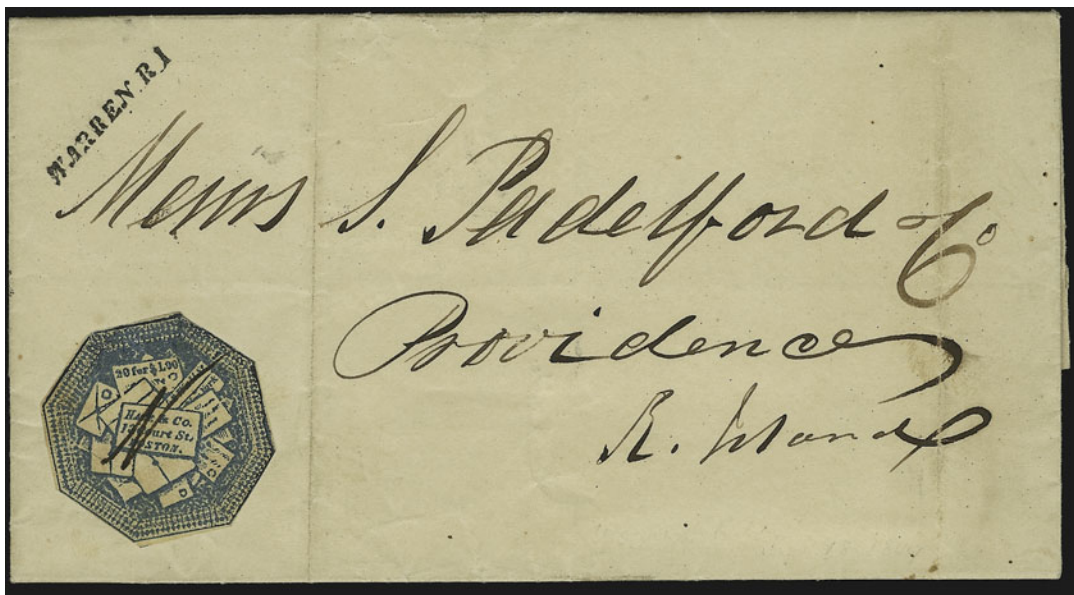 WARREN. R I
Messrs S. Padelford & Co
Providence
R. Island
20 for $1.00
& Co.
Court St,
BOSTON.